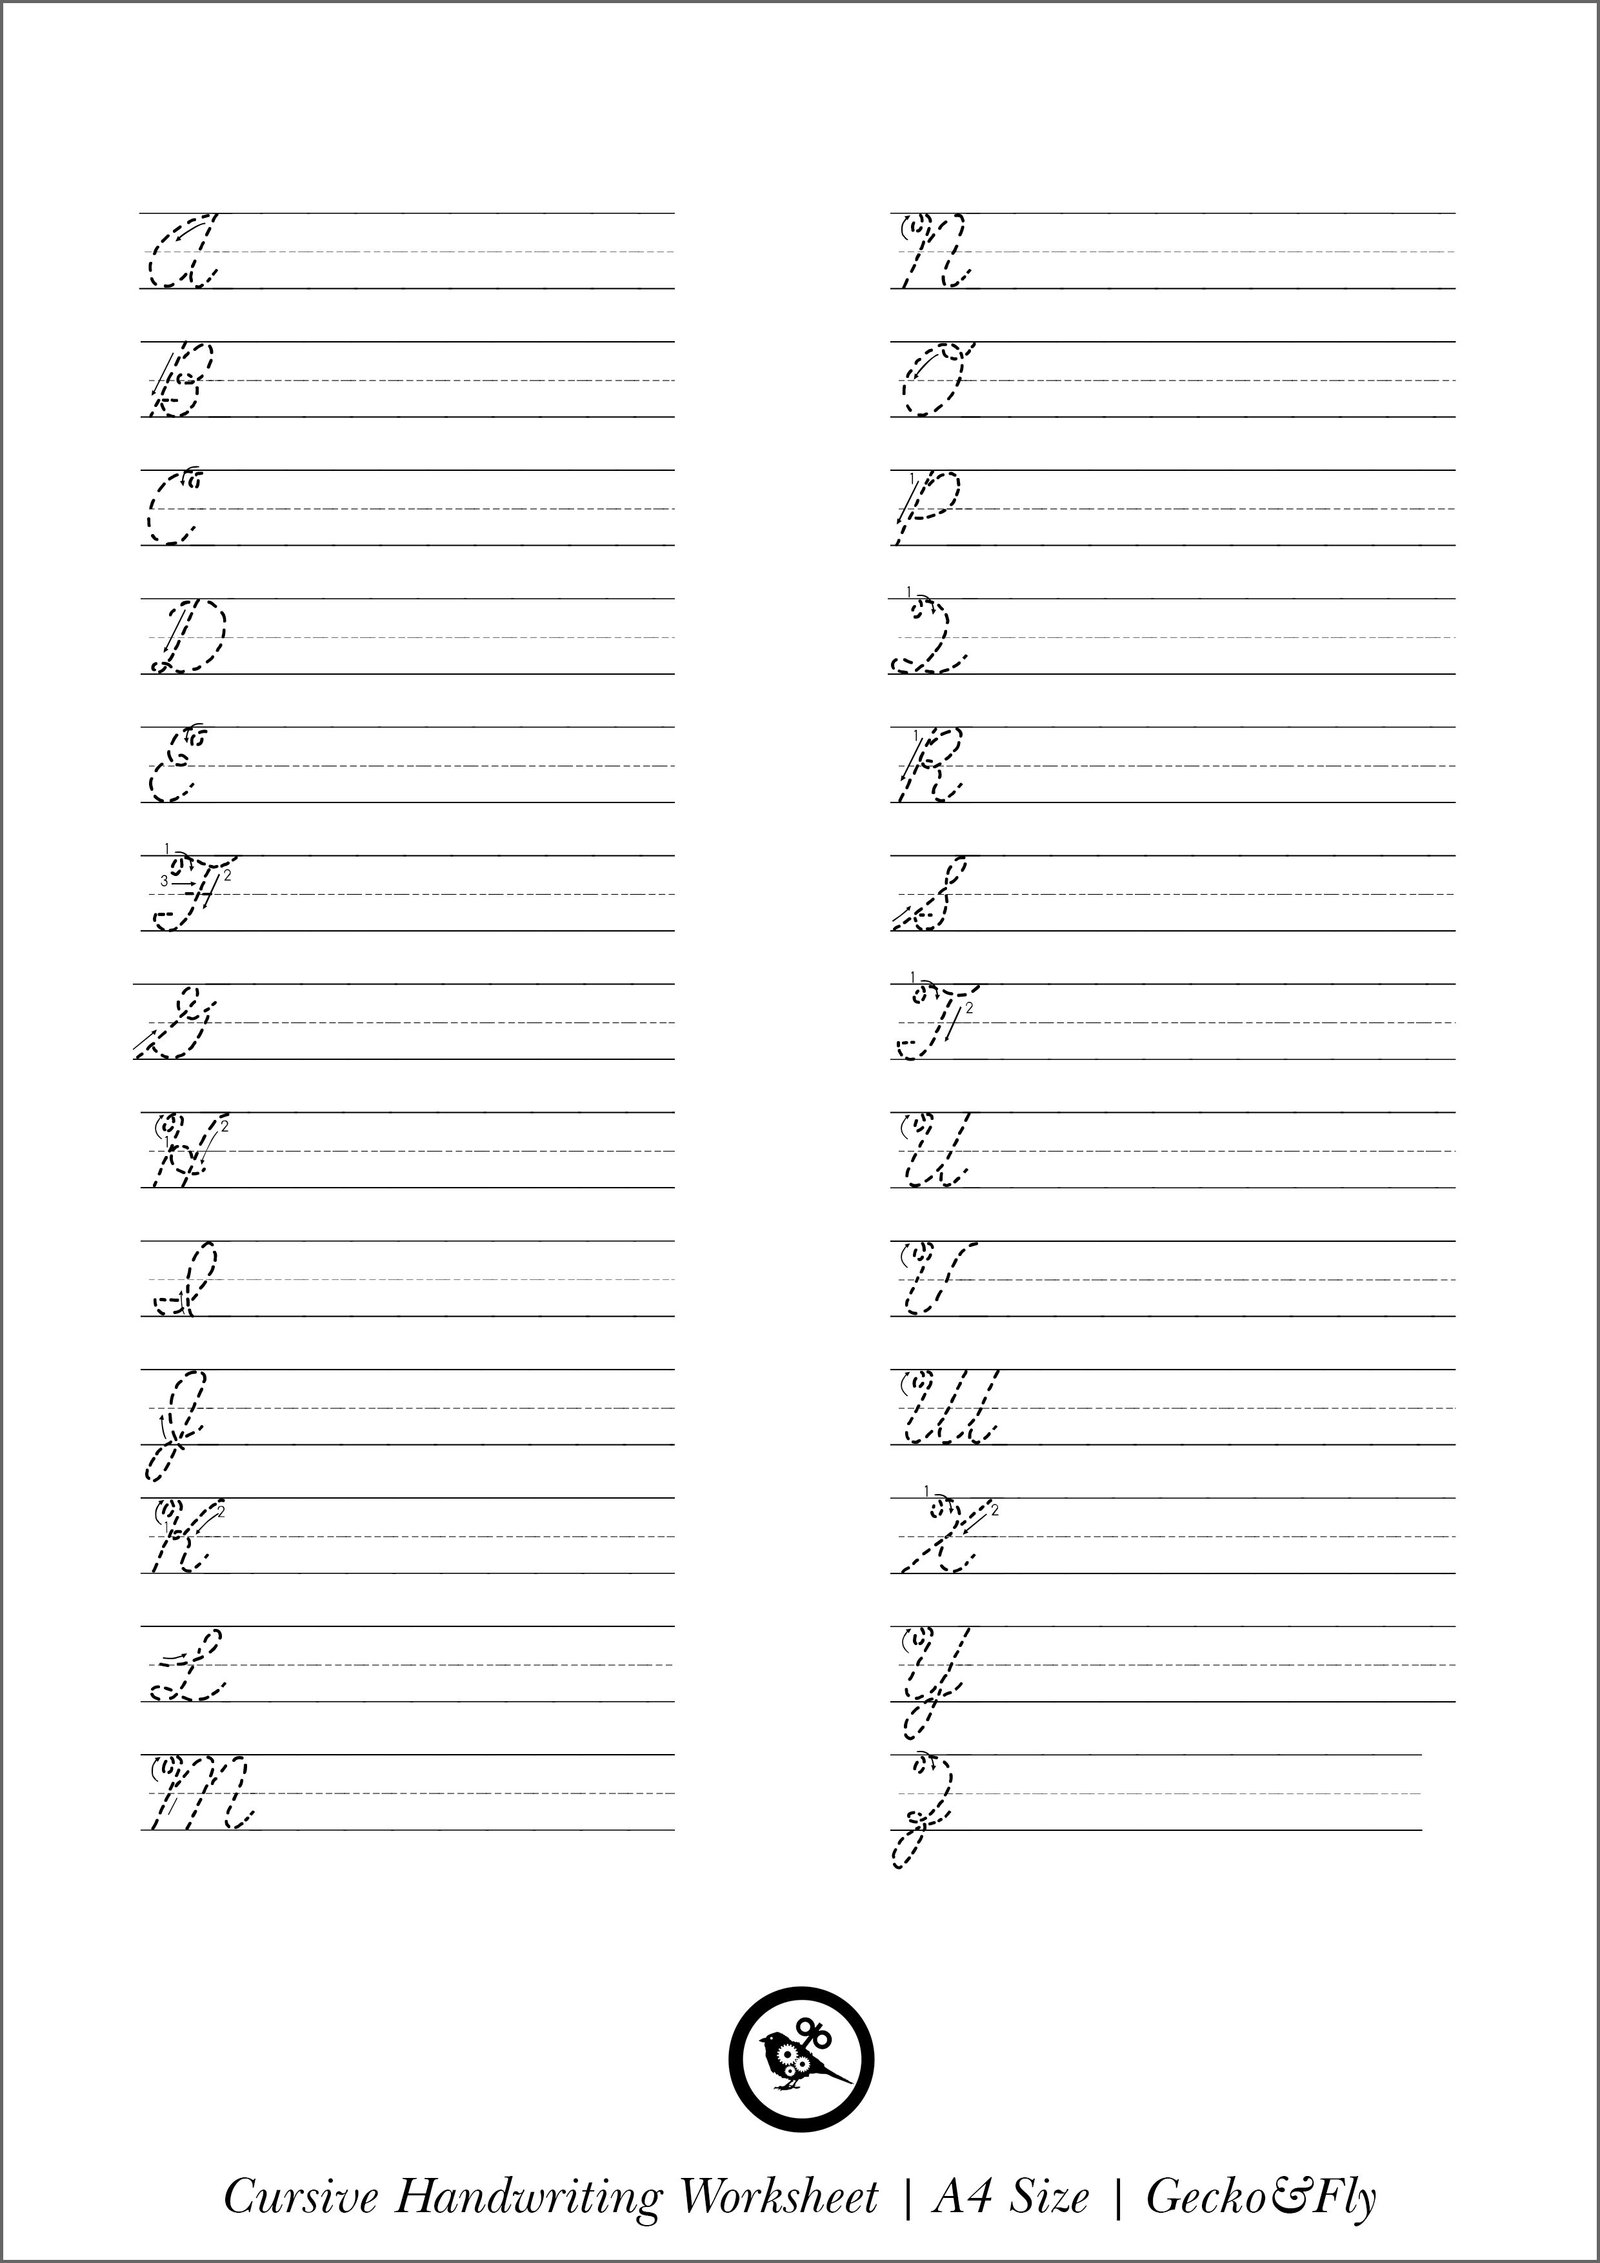 A
B
C
D
E
1 F 2
3
G
H 2
1
I
J
K 2
1
L
M
N
O
1 P
1 Q
1 R
S
1 T 2
U
V
W
1 X 2
Y
Z
Cursive Handwriting Worksheet | A4 Size | Gecko&Fly